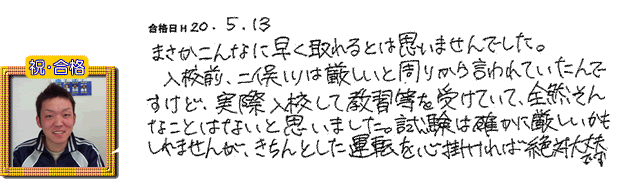 祝・合格
合格日 H20.5.13
まさかこんなに早く取れるとは思いませんでした。
入校前、二俣川は厳しいと周りから言われていたんで
すけど、実際入校して教習等を受けていて、全然そん
なことはないと思いました。試験は確かに厳しいかも
しれませんが、きちんとした運転を心掛ければ絶対大丈夫
です